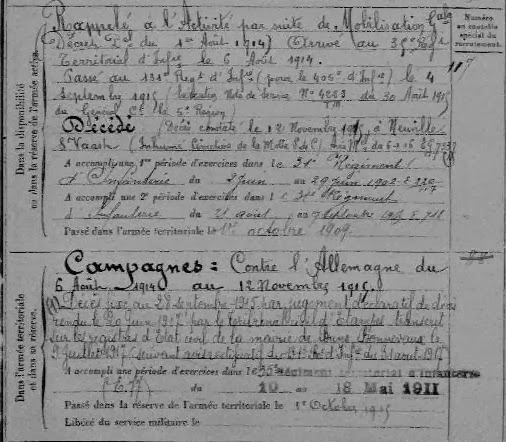 Rappelé à l'Activité par suite de Mobilisation Gale
Décret Pal du 1er Août 1914) (Arrivé au 35e Regt
Territorial d'Infie le 6 Août 1914.
Passé au 131e Regt d'Infie (pour le 405e d'Infie) le 4
Septembre 1915 (Note de Service No 4253 du 30 Août 1915
du Général Ct la 5e Région)
Décédé (Décès constaté le 12 Novembre 1915, à Neuville
St Vaast (Inhumé Cimetière de la Motte P. de C.)
A accompli une 1re période d'exercices dans le 31e Régiment
d'Infanterie du 2 Juin au 29 Juin 1902
A accompli une 2e période d'exercices dans le
d'Infanterie du août au 7 Septembre
Passé dans l'armée territoriale le 1er octobre 1909.
Campagnes: Contre l'Allemagne du
6 Août 1914 au 12 Novembre 1915.
(1) Décès fixé au 28 Septembre 1915 par jugement déclaratif de décès
rendu le 20 juin 1917 par le tribunal civil d'Etampes transcrit
sur les registres d'Etat civil de la mairie de Bonnevaux le
9 Juillet 1917 suivant avis rectificatif du 131e Rt d'Infie du 31 août 1917
A accompli une période d'exercices dans le 35e régiment territorial d'infanterie
du 10 au 18 Mai 1911
Passé dans la réserve de l'armée territoriale le 1er Octobre 1915
Libéré du service militaire le
Dans la disponibilité
ou dans la réserve de l'armée active.
Dans l'armée territoriale
et dans sa réserve.
Numéro
au contrôle
spécial du
recrutement.
117